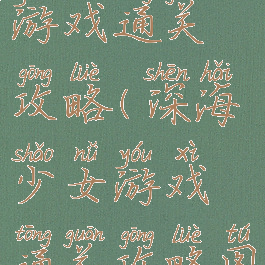 游戏通关
gōng lüè shēn hǎi
攻略(深海
shào nǚ yóu xì
少女游戏
tōng guān gōng lüè tú
通关攻略图